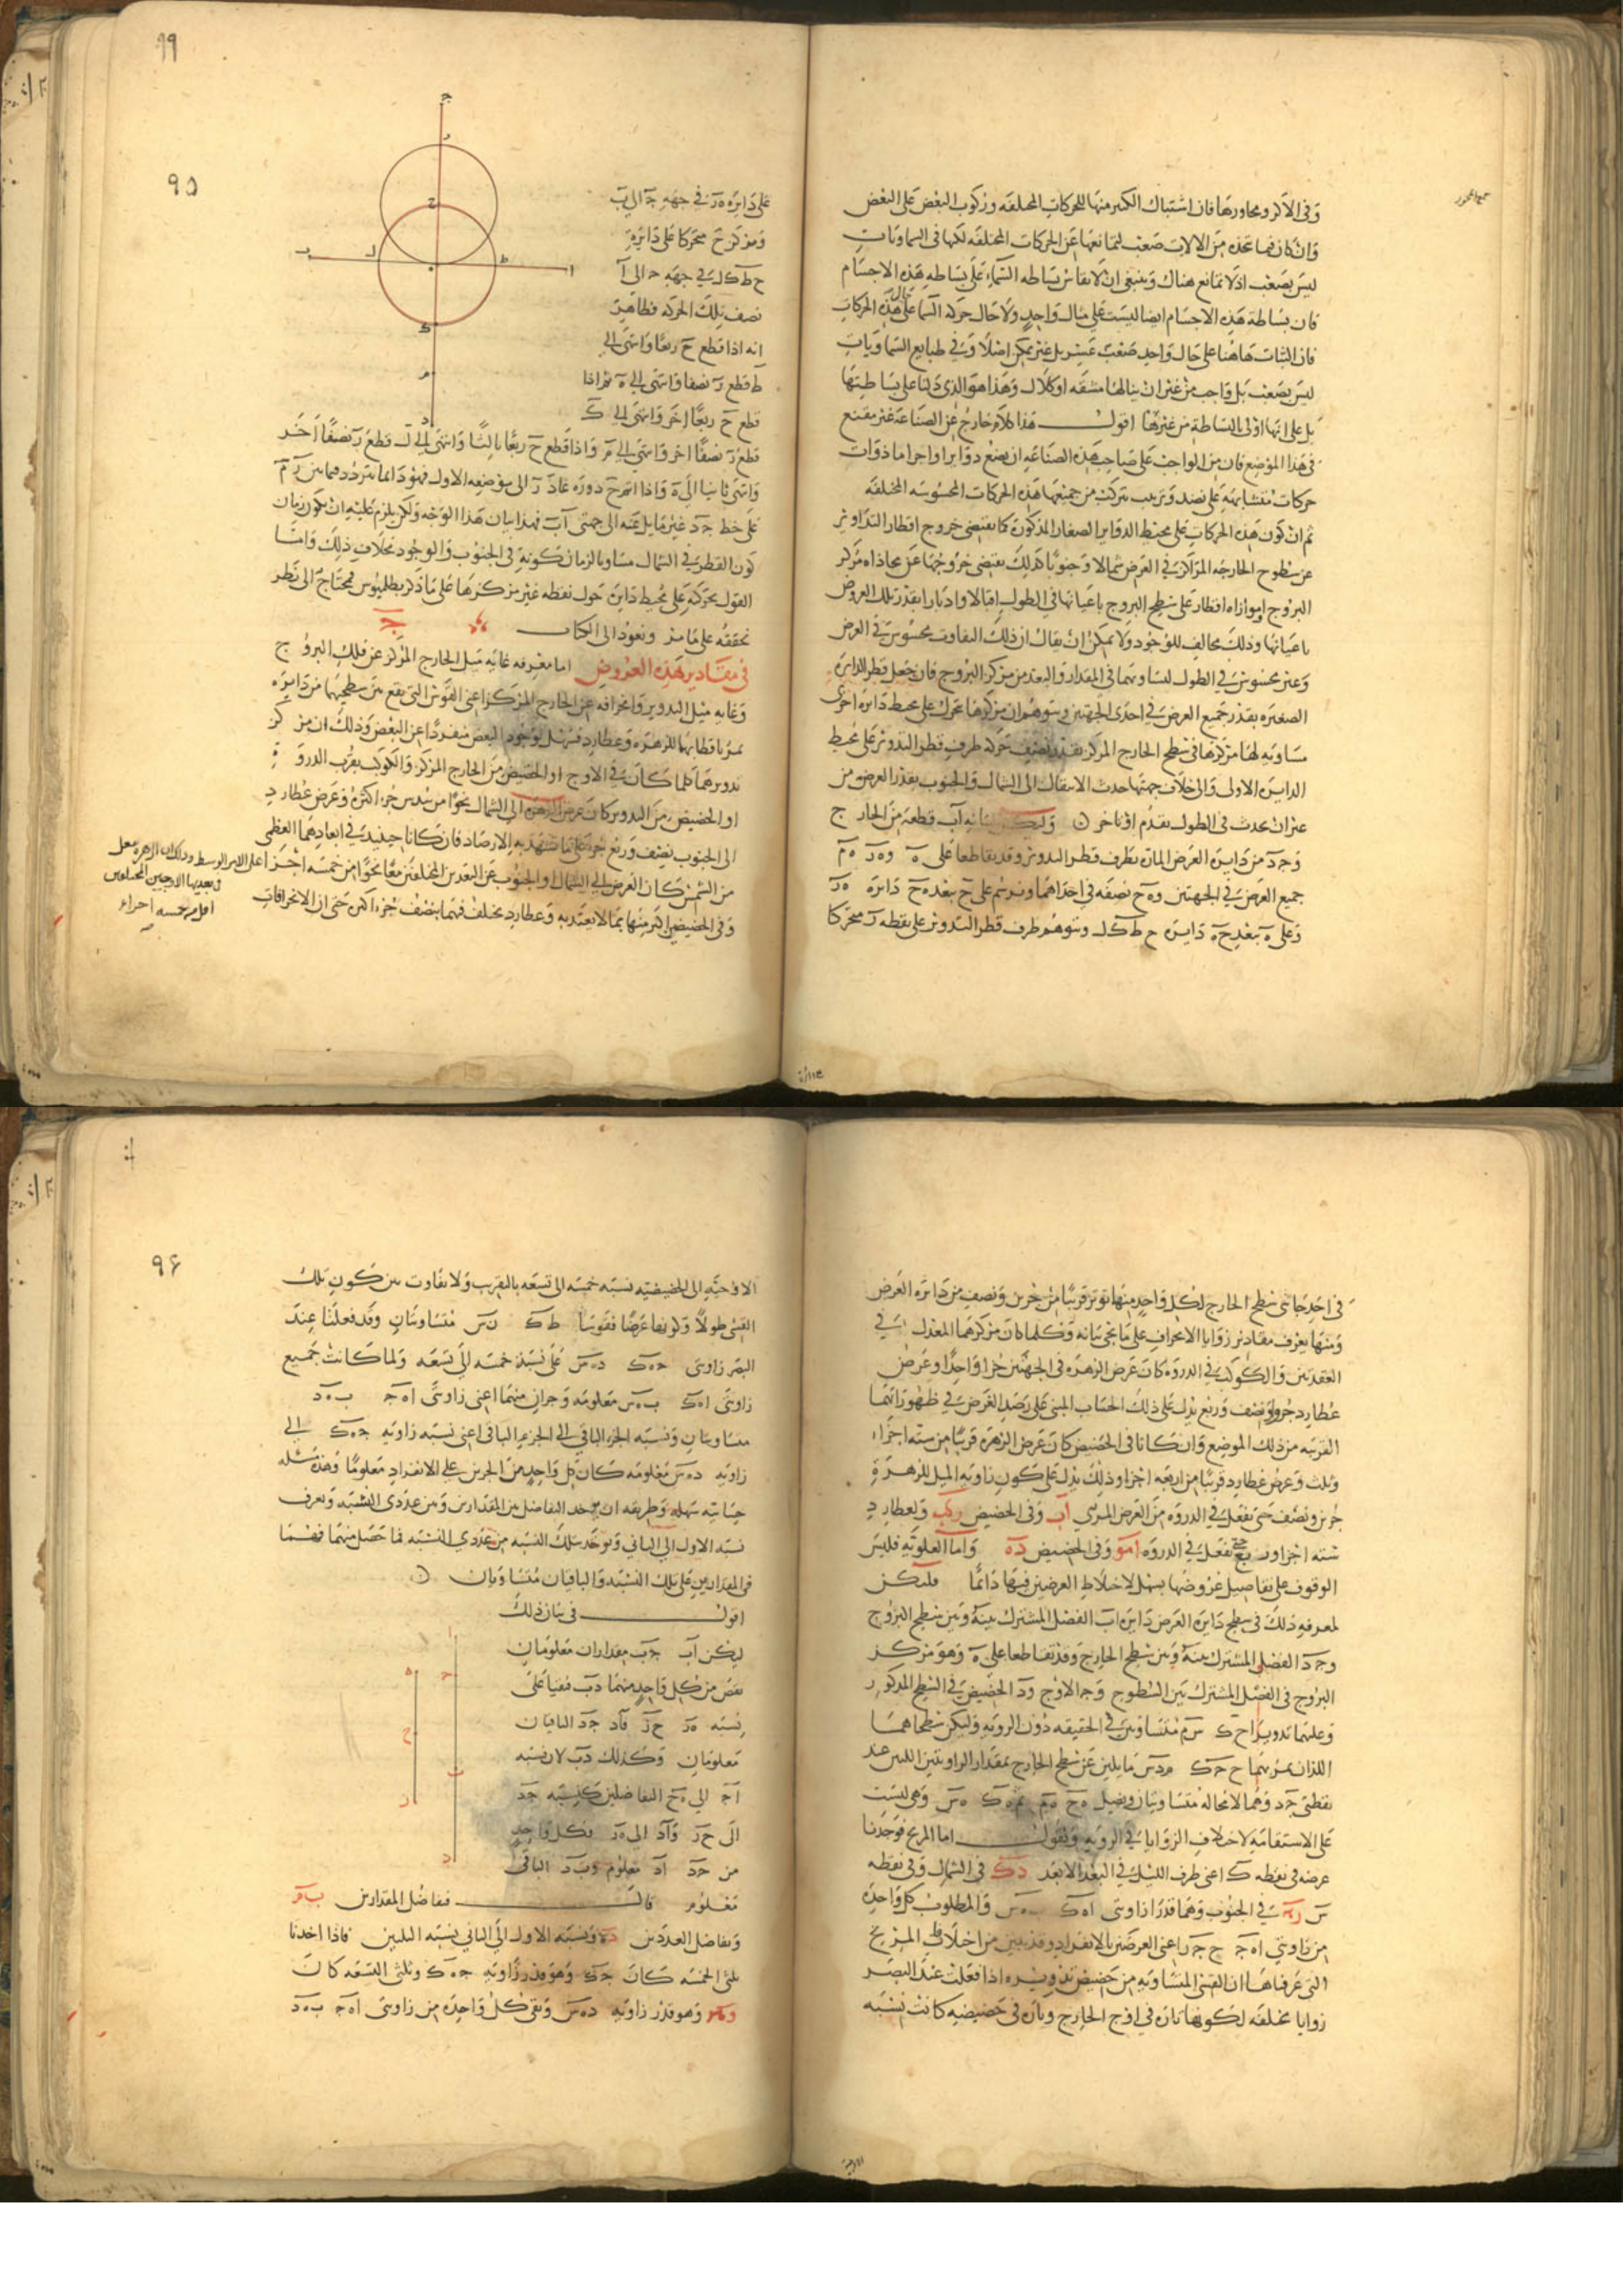 وفى الاكر ومحاورها فان اشتباك الكثير منها للحركات المختلفه وركوب البعض على البعض
وان كان فيما نتخذه من الالات صعب لتمانعها عن الحركات المختلفه لكنها فى السماويات
ليس بصعب اذ لا تمانع هناك وينبغى ان لا يقاس بساطه السماء على بساطه هذه الاجسام
فان بساطة هذه الاجسام ايضا ليست على مثال واحد ولا حال حركه السما على حال هذه الحركات
فان الثبات هاهنا على حال واحد صعب عسر بل غير ممكن اصلا وفى طبايع السماويات
ليس بصعب بل واجب من غير ان ينالها مشقه او كلال وهذا هو الذى دلنا على بساطتها
بل على انها اولى بالبساطة من غيرها اقول هذا كلام خارج عن الصناعة غير مقنع
فى هذا الموضع فان من الواجب على صاحب هذه الصناعه ان يضع دوايرا واجراما ذوات
حركات متشابهة على نضد وترتيب يتركب من جميعها هذه الحركات المحسوسه المختلفه
ثم ان كون هذه الحركات على محيط الدواير الصغار المذكورة كما يقتضى خروج اقطار التداوير
عن سطوح الخارجه المراكز فى العرض شمالا وجنوبا كذلك يقتضى خروجها عن محاذاه مركز
البروج او موازاه اقطار على سطح البروج باعيانها فى الطول اقبالا وادبارا بقدر تلك العروض
باعيانها وذلك مخالف للوجود ولا يمكن ان يقال ان ذلك التفاوت محسوس فى العرض
وغير محسوس فى الطول لتساويهما فى المقدار والبعد من مركز البروج فان جعل قطر الدايرة
الصغيره بقدر جميع العرض فى احدى الجهتين وتوهم ان مركزها تحرك على محيط دايره اخرى
مساويه لها مركزها فى سطح الخارج المركز بقدر نصف حركه طرف قطر التدوير على محيط
الدايره الاولى والى خلاف جهتها حدث الانتقال الى الشمال والجنوب بقدر العرض من
غير ان يحدث فى الطول تقدم او تاخر وليكن لبيانه اب قطعه من الخارج
وجد من دايرة العرض المارة بطرف قطر التدوير وقد تقاطعا على ه وه ر ه م
جميع العرض فى الجهتين وه ح نصفه فى احداهما ونرسم على ح ببعد ه ح دايرة ه ر
وعلى ه ببعد ح ه دايرة ح ط ك ل ونتوهم طرف قطر التدوير على نقطه ر متحركا
٩٩
٩٥
على دايره ه ر فى جهه ج الى ب
ومركز ح متحركا على دايرة
ح ط ك ل فى جهه ج الى ا
نصف تلك الحركه فظاهر
انه اذا قطع ح ربعا وانتهى الى
ط قطع ر نصفا وانتهى الى ه ثم اذا
قطع ح ربعا اخر وانتهى الى ك
قطع ر نصفا اخر وانتهى الى م واذا قطع ح ربعا ثالثا وانتهى الى ل قطع ر نصفا اخر
وانتهى ثانيا الى ه واذا اتم ح دورة عاد ر الى موضعه الاول فهو دايما يتردد فيما بين ر م
على خط ج د غير مايل عنه الى جهتى ا ب فهذا بيان هذا الوجه ولكن يلزم عليه ان يكون زمان
كون القطر فى الشمال مساويا لزمان كونه فى الجنوب والوجود بخلاف ذلك وامّا
القول بحركه على محيط دايرة حول نقطه غير مركزها على ما ذكر بطلميوس فمحتاج الى نظر
نحققه على ما مر ونعود الى الكتاب
فى مقادير هذه العروض اما معرفه غايه ميل الخارج المركز عن فلك البروج
وغايه ميل التدوير وانحرافه عن الخارج المركز اعنى القوس التى تقع بين سطحيهما من دايره
تمر باقطابهما للزهره وعطارد فسهل لوجود البعض منفردا عن البعض وذلك ان مركز
تدويرهما كلما كان فى الاوج او الحضيض من الخارج المركز والكوكب بقرب الذروة
او الحضيض من التدوير كان عرض الزهره الى الشمال نحوا من سدس جزء اكثره وعرض عطارد
الى الجنوب نصف وربع جزء على ما تشهد به الارصاد فان كانا حينئذ فى ابعادهما العظمى
من الشمس كان العرض الى الشمال او الجنوب عن البعدين المختلفين معا نحوا من خمسه اجزا
وفى الحضيض اكثر منها بما لا يعتد به وعطارد يختلف فيهما بنصف جزء اكثر حتى ان الانحرافات
فى احد جانبى سطح الخارج لكل واحد منها توتر قريبا من جزين ونصف من دايره العرض
ومنها يعرف مقادير زوايا الانحراف على ما يجى بيانه وكلما كان مركزهما المعدل فى
العقدتين والكوكب فى الذروه كان عرض الزهره فى الجهتين جزا واحدا وعرض
عطارد جزوا ونصف وربع يدل على ذلك الحساب المبنى على رصد العرض فى ظهوراتهما
القريبه من ذلك الموضع وان كانا فى الحضيض كان عرض الزهرة قريبا من سته اجزاء
وثلث وعرض عطارد قريبا من اربعه اجزا وذلك يدل على كون زاويه الميل للزهرة
جزين ونصف حتى تفعل فى الذروه من العرض المرئى اب وفى الحضيض ركب ولعطارد
سته اجزا وربع حتى تفعل فى الذروه امو وفى الحضيض ده واما العلويه فليس
الوقوف على تفاصيل عروضها بسهل لاختلاط العرضين فيها دائما فليكن
لمعرفه ذلك فى سطح دايره العرض دايره اب الفصل المشترك بينه وبين سطح البروج
وج د الفصل المشترك بينه وبين سطح الخارج وقد تقاطعا على ه وهو مركز
البروج فى الفصل المشترك بين السطوح وج الاوج ود الحضيض فى السطح المذكور
وعليهما تدويرا ح ك س م متساويين فى الحقيقه دون الرويه وليكن سطحاهما
اللذان يمر بهما ح ج ك م د س مايلين عن سطح الخارج بمقدار الزاويتين اللتين عند
نقطتى ج د وهما لا محاله متساويتان ونصل ه ح ه م ه ك ه س وهى ليست
على الاستقامه لاختلاف الزوايا فى الرويه ونقول اما المريخ فوجدنا
عرضه فى نقطه ك اعنى طرف الليل فى البعد الابعد دك فى الشمال وفى نقطه
س ز فى الجنوب وهما قدرا زاويتى ا ه ك ب ه س والمطلوب كل واحده
من زاويتى ا ه ج ج ه ك اعنى العرضين بالانفراد وقد تبين من اختلاف المريخ
التى عرفناها ان القسى المتساويه من حضيض تدويره اذا فعلت عند البصر
زوايا مختلفه لكونها تارة فى اوج الخارج وتارة فى حضيضيه كانت نسبه
٩۶
الاوجيه الى الحضيضيه نسبه خمسه الى تسعه بالتقريب ولا تفاوت بين كون تلك
القسى طولا وكونها عرضا فقوسا ط ك ن س متساويتان وقد فعلتا عند
البصر زاويتى ج ه ك د ه س على نسبة خمسه الى تسعه ولما كانت جميع
زاويتى ا ه ك ب ه س معلومه وجزان منهما اعنى زاويتى ا ه ج ب ه د
متساويتان ونسبه الجزء الباقى الى الجزء الباقى اعنى نسبه زاويه ج ه ك الى
زاويه د ه س معلومه كان كل واحد من الجزين على الانفراد معلوما وهذه مسئله
حسابيه سهله وطريقه ان يوخذ التفاضل بين المقدارين وبين عددى النسبه ويعرف
نسبه الاول الى الثانى ويوخذ بتلك النسبه من عددى النسبه فما حصل منهما فهما
فى المقدارين على تلك النسبه والباقيان متساويان
اقول فى بيان ذلك
ليكن اب ج ب مقداران معلومان
نقص من كل واحد منهما د ب فبقيا على
نسبه ه ر ح ر فا د ج د الباقيان
معلومان وكذلك د ب لان نسبه
ا ج الى ه ح التفاضلين كنسبه ج د
الى ح ر وا د الى ه ر فكل واحد
من ج د ا د معلوم وب د الباقى
معلوم قال فتفاضل المقدارين
وتفاضل العددين ده ونسبه الاول الى الثانى نسبه الثلثين فاذا اخذنا
ثلثى الخمسه كان ج ك وهو قدر زاويه ج ه ك وثلثى التسعه كان
وهو قدر زاويه د ه س وبقى كل واحده من زاويتى ا ه ج ب ه د